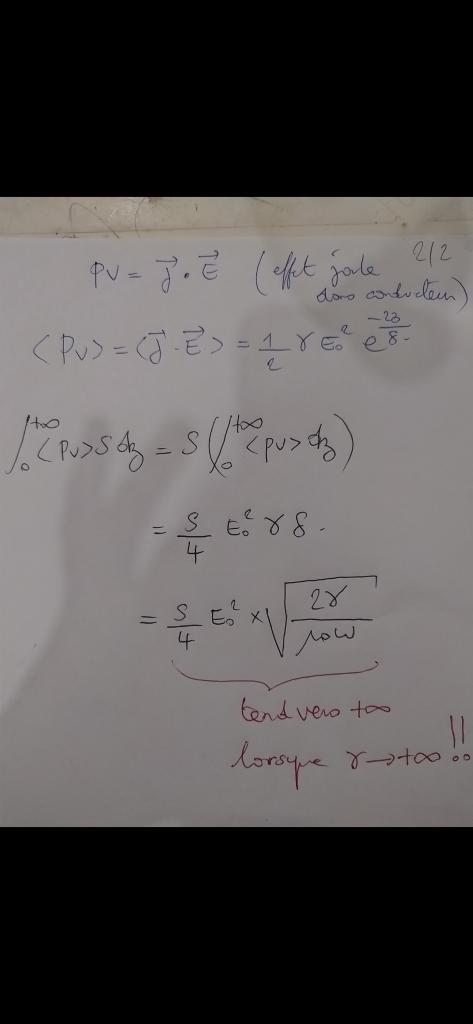 2/2
Pv = j⃗ . E⃗ (effet joule
dans conducteur)
<Pv> = <j⃗ . E⃗> = 1/2 γ E₀² e^(-2z/δ).
∫₀^(+∞) <Pv> S dz = S (∫₀^(+∞) <Pv> dz)
= S/4 E₀² γ δ.
= S/4 E₀² × √(2γ/μ₀ω)
tend vers +∞
lorsque γ → +∞ !!